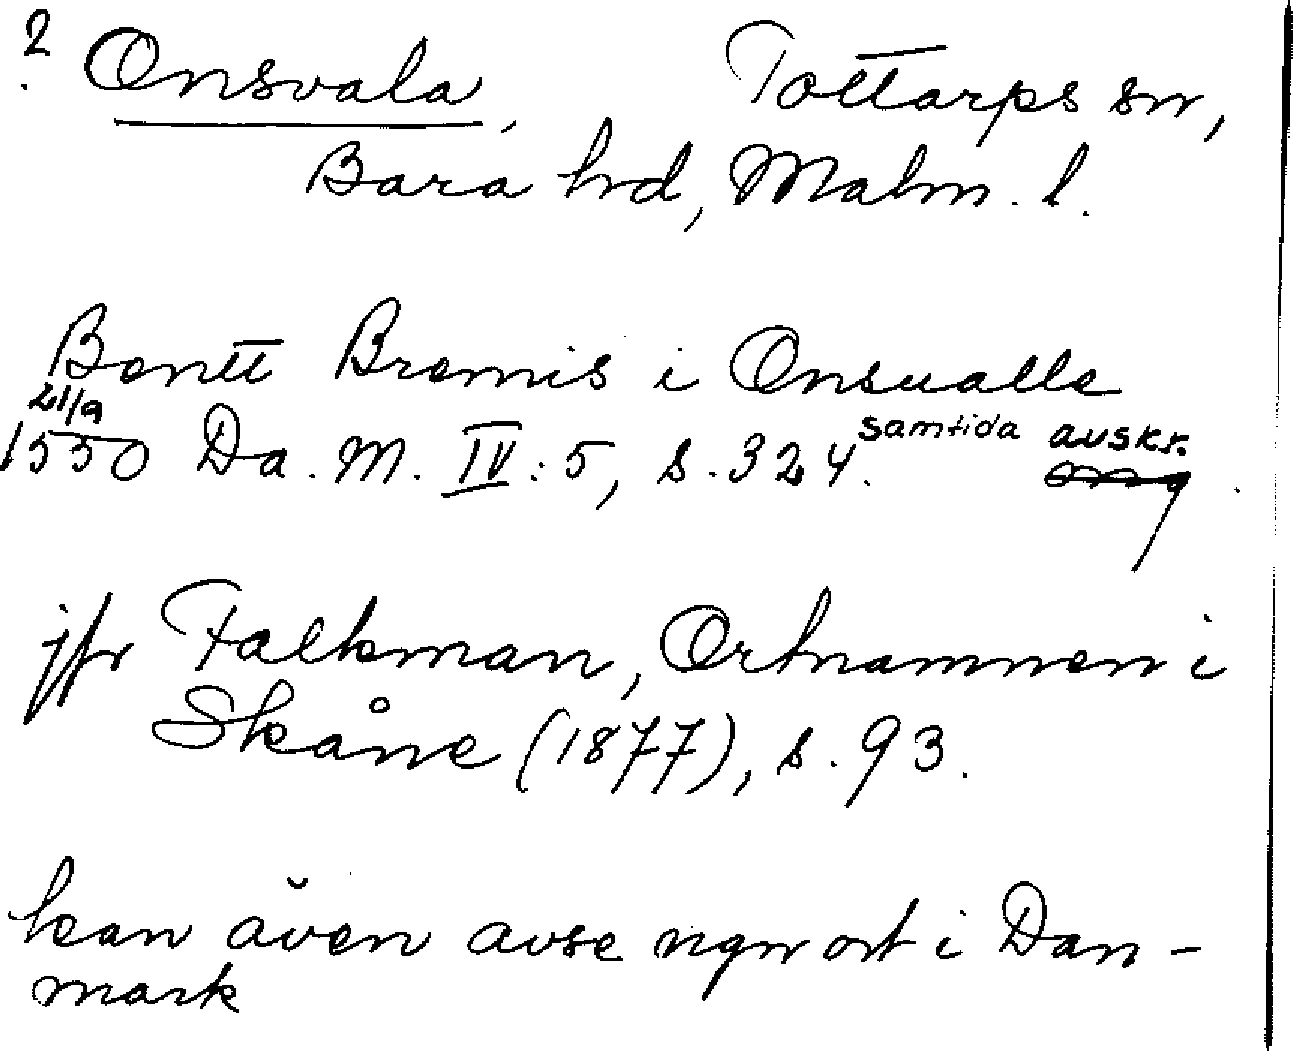 ? Onsvala, Tottarps sn,
Bara hd, Malm. l.
Bentt Bremis i Onsualle
21/9
1550 Da. M. IV: 5, s. 324. samtida avskr.
jfr Falkman, Ortnamnen i
Skåne (1877), s. 93.
kan även avse ngn ort i Dan-
mark